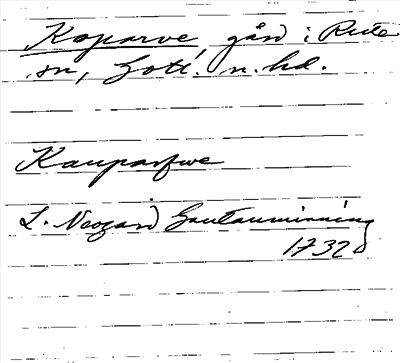 Koparve, gård i Rute
sn, Gotl. n. hd.
Kauparfwe
L. Neogard Gautauminning
1732